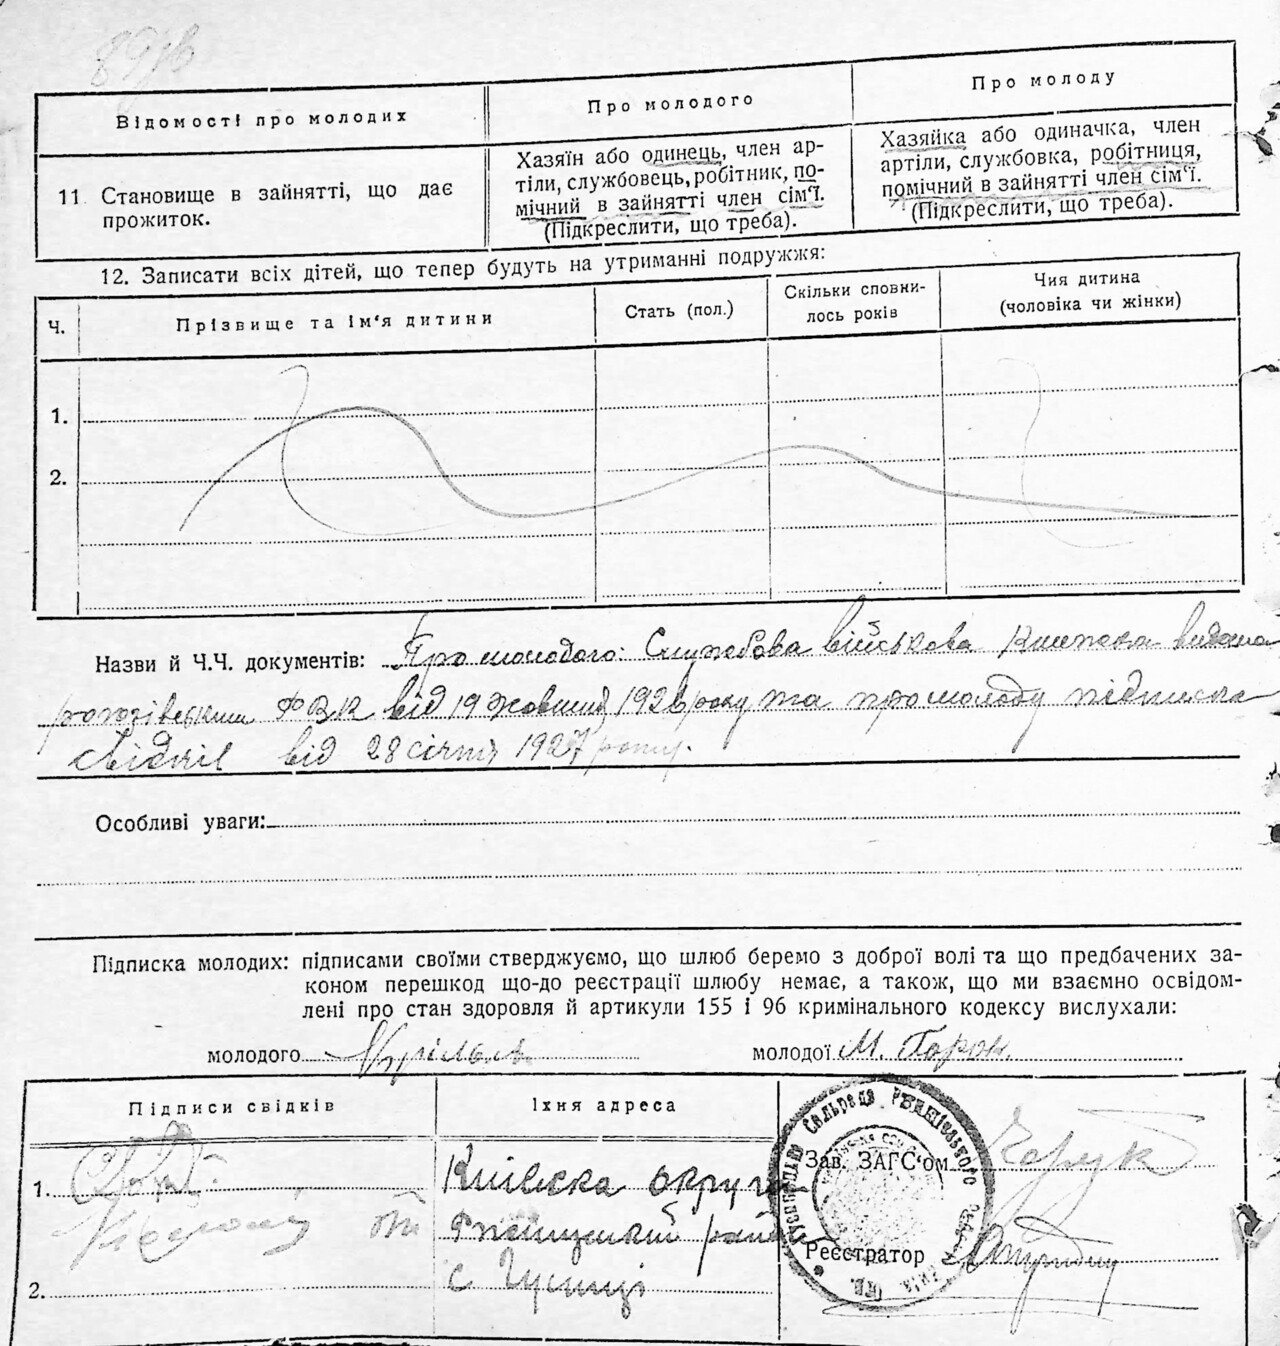 Відомості про молодих
Про молодого
Про молоду
11 Становище в зайнятті, що дає
прожиток.
Хазяїн або одинець, член ар-
тіли, службовець, робітник, по-
мічний в зайнятті член сім‘ї.
(Підкреслити, що треба).
Хазяйка або одиначка, член
артіли, службовка, робітниця,
помічний в зайнятті член сім‘ї.
(Підкреслити, що треба).
12. Записати всіх дітей, що тепер будуть на утриманні подружжя:
Ч.
Прізвище та ім‘я дитини
Стать (пол.)
Скільки сповни-
лось років
Чия дитина
(чоловіка чи жінки)
1.
2.
Назви й Ч.Ч. документів: Про молодого: Службова військова книжка видана
ФВК від 19 жовтня 1926 року та про молоду підписка
свідків від 28 січня 1927 року.
Особливі уваги:
Підписка молодих: підписами своїми стверджуємо, що шлюб беремо з доброї волі та що предбачених за-
коном перешкод що-до реєстрації шлюбу немає, а також, що ми взаємно освідом-
лені про стан здоровля й артикули 155 і 96 кримінального кодексу вислухали:
молодого
молодої М.
Підписи свідків
Їхня адреса
1.
Київска округа
район
с Гусинці
2.
Зав. ЗАГС‘ом
Реєстратор
Сельрада Ржищівського